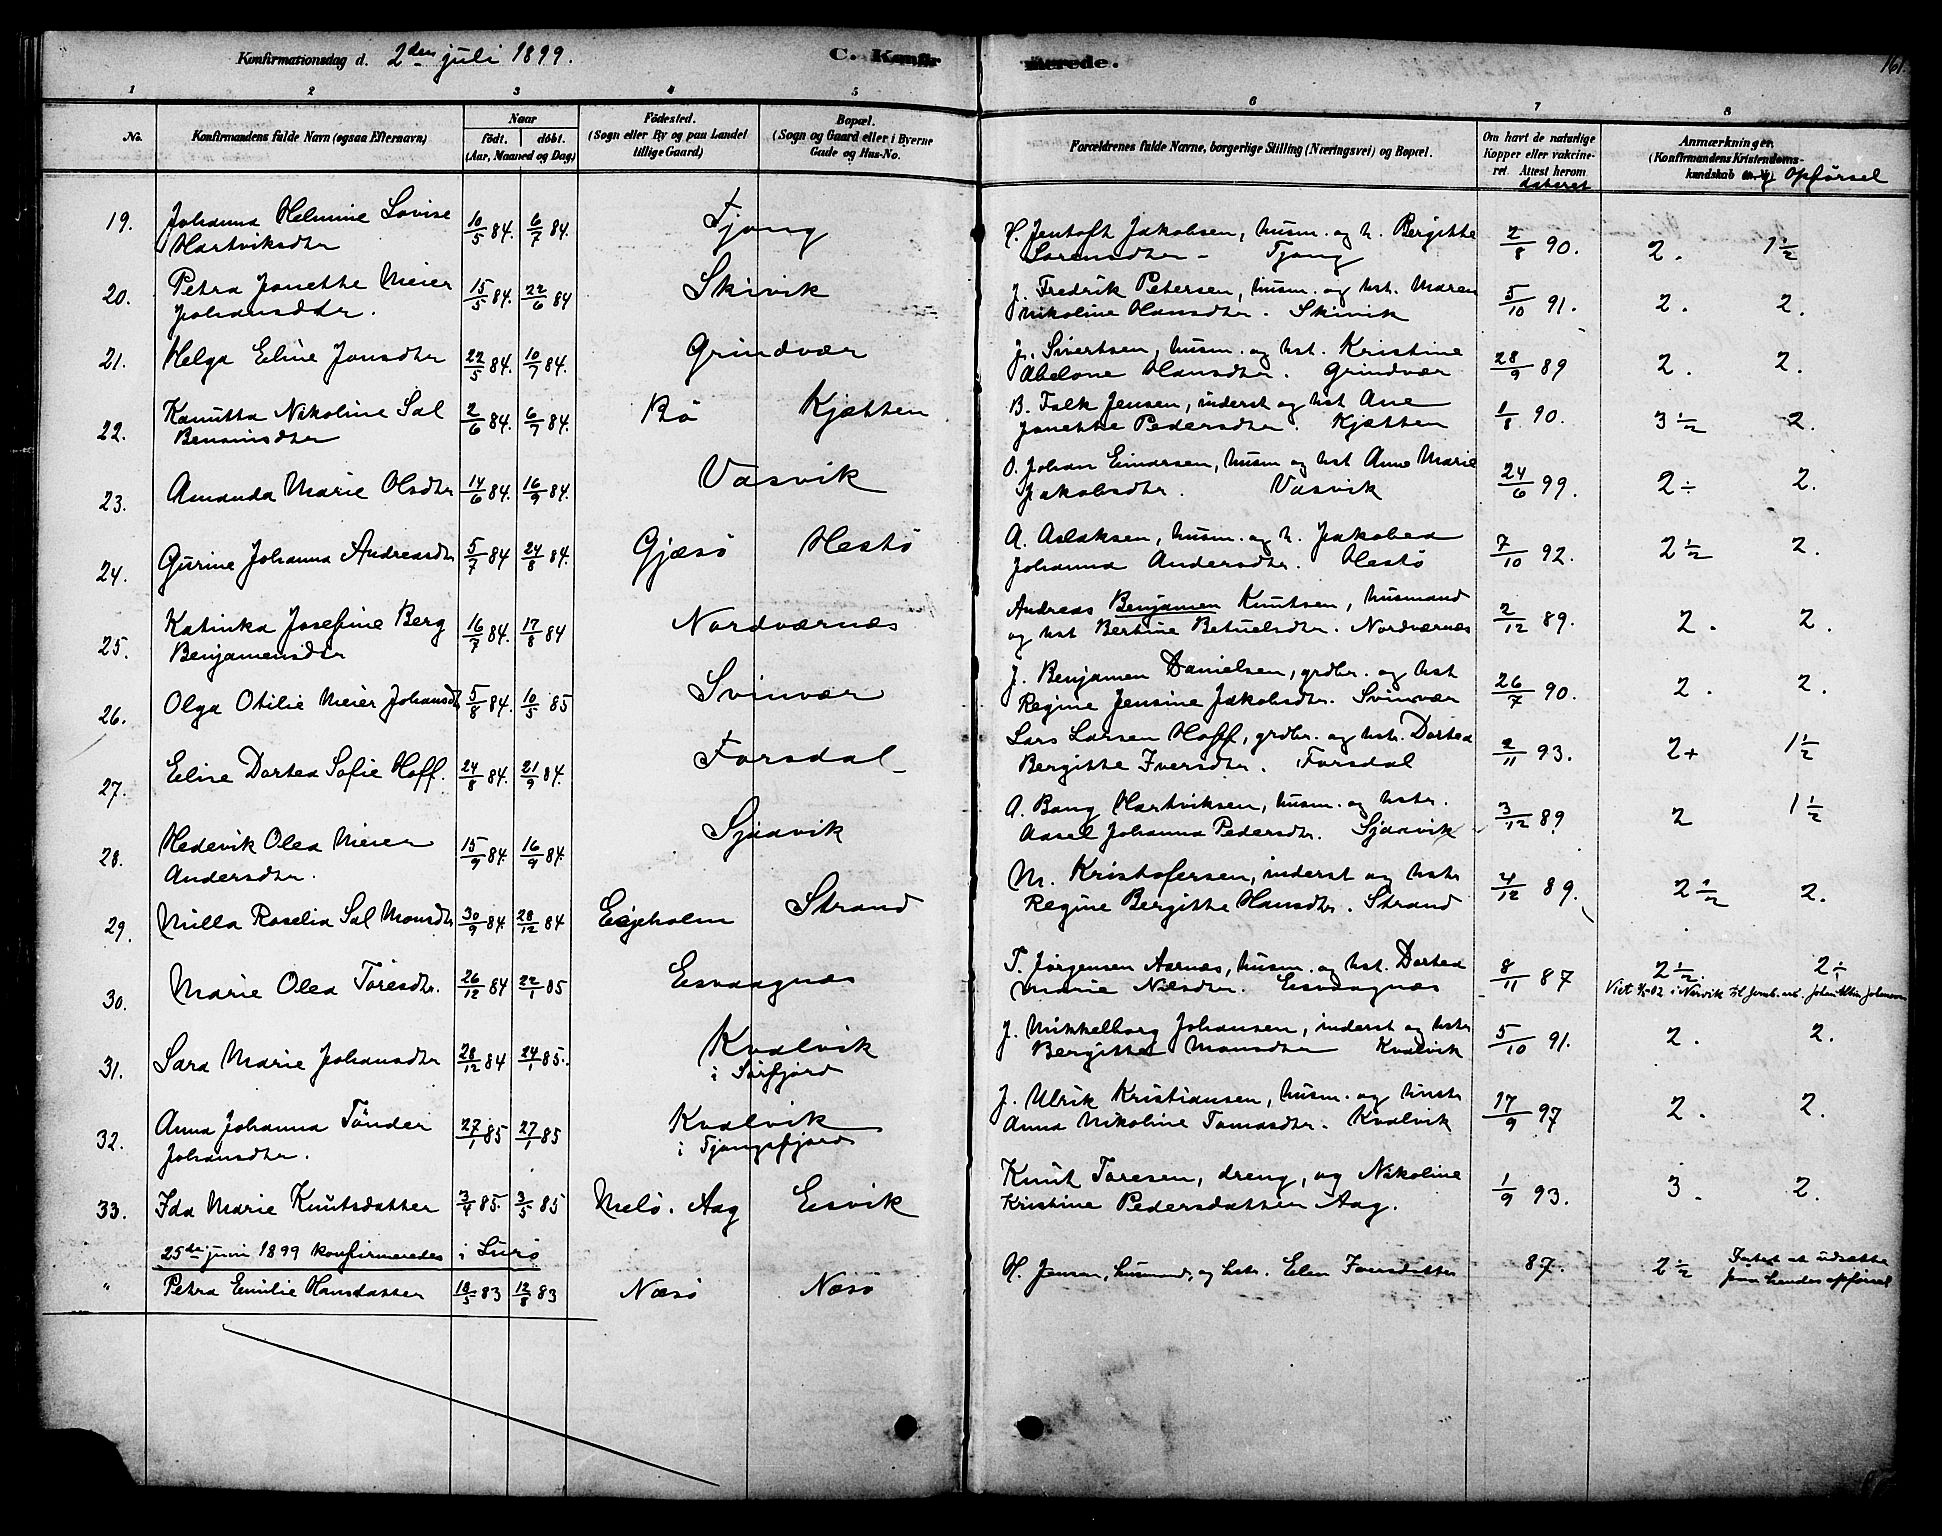 Konfirmationsdag d. 2den juli 1899.
C. Konfirmerede.
161.
1 2 3 4 5 6 7 8
No.
Konfirmandens fulde Navn (ogsaa Efternavn)
Naar
födt. döbt.
(Aar, Maaned og Dag)
Födested.
(Sogn eller By og paa Landet
tillige Gaard)
Bopæl.
(Sogn og Gaard eller i Byerne
Gade og Hus-No.
Forældrenes fulde Navne, borgerlige Stilling (Næringsvei) og Bopæl.
Om havt de naturlige
Kopper eller vakcine-
ret. Attest herom
dateret
Anmærkninger.
(Konfirmandens Kristendoms-
kundskab og Opförsel
19. Johanna Helmine Lovise
Hartviksdtr 10/5 84. 6/7 84. Tjong
H. Jentoft Jakobsen, husm. og h. Bergitte
Sørensdtr - Tjong 2/8 90. 2. 1 1/2
20. Petra Janette Meier
Johansdtr. 15/5 84. 22/6 84 Skivik
J. Fredrik Petersen, husm. og hst. Maren
Nikoline Hansdtr. Skivik 5/10 91. 2. 2.
21. Helga Eline Jonsdtr 22/5 84. 10/7 84. Grindvær
J. Sivertsen, husm. og hst. Kristine
Abelone Hansdtr. Grindvær 28/9 89 2. 2.
22. Kanutta Nikoline Sal
Bensinsdtr 2/6 84. 6/7 84. Bö Kjætten
B. Falk Jensen, inderst og hst Ane
Janette Pedersdtr. Kjætten 1/8 90. 3 1/2 2.
23. Amanda Marie Olsdtr 14/6 84. 16/9 84. Vasvik
O. Johan Einarsen, husm og hst Anne Marie
Jakobsdtr. Vasvik 24/6 99. 2÷ 2.
24. Gurine Johanna Andreasdtr 5/7 84 24/8 84. Gjæsö Hestö
A. Aslaksen, husm. og h. Jakobea
Johanna Andersdtr. Hestö 7/10 92. 2 1/2 2.
25. Katinka Josefine Berg
Benjamensdtr 16/7 84. 17/8 84 Nordværnæs
Andreas Benjamen Knutsen, husmand
og hst Bertine Betuelsdtr. Nordværnæs 2/12 89. 2. 2.
26. Olga Otilie Meier Johansdtr 5/8 84. 10/5 85 Svinvær
J. Benjamen Danielsen, grdbr. og hst
Regine Jensine Jakobsdtr. Svinvær 26/7 90. 2. 2.
27. Eline Dortea Sofie Hoff. 24/8 84. 21/9 84. Forsdal
Lars Larsen Hoff, grdbr. og hstr. Dortea
Bergitte Iversdtr. Forsdal 2/11 93. 2+ 1 1/2
28. Hedevik Olea Meier
Andersdtr. 15/9 84. 16/9 84. Sjaavik
A. Bang Hartviksen, husm. og hstr.
Aasel Johanna Pedersdtr. Sjaavik 3/12 89 2 1 1/2
29. Milla Roselia Sal Monsdtr 30/9 84. 28/12 84 Esjeholm Strand
M. Kristofersen, inderst og hstr
Regine Bergitte Hansdtr. Strand 4/12 89. 2 1/2 2.
30. Marie Olea Töresdtr. 26/12 84 22/1 85 Esvaagnæs
T. Jørgensen Aarnæs, husm. og hst. Dortea
Marie Nilsdtr. Esvaagnæs 8/11 87 2 1/2. 2÷
Viet 02 i Narvik til Jernb. arb. Johan Johansen
31. Sara Marie Johansdtr 28/12 84 24/1 85. Kvalvik
i Sörfjord
J. Mikkelborg Johansen, inderst og hstr
Bergitte Monsdtr Kvalvik 5/10 91. 2. 2.
32. Anna Johanna Tönder
Johansdtr. 27/1 85 27/1 85 Kvalvik
i Tjongsfjord
J. Ulrik Kristiansen, husm. og hustr
Anna Nikoline Tomasdtr. Kvalvik 17/9 97 2. 2.
33. Ida Marie Knutsdatter 3/4 85. 3/5 85 Melö. Aag Esvik
Knut Toresen, dreng, og Nikoline
Kristine Pedersdatter Aag. 1/9 93. 3. 2.
25de juni 1899 konfirmeredes i Lurö
" Petra Emilie Hansdatter 18/5 83 12/8 83 Næsö Næsö
H. Jensen, husmand, og hstr. Elen Iversdatter 87. 2 1/2 Intet at udsætte
paa hendes opförsel